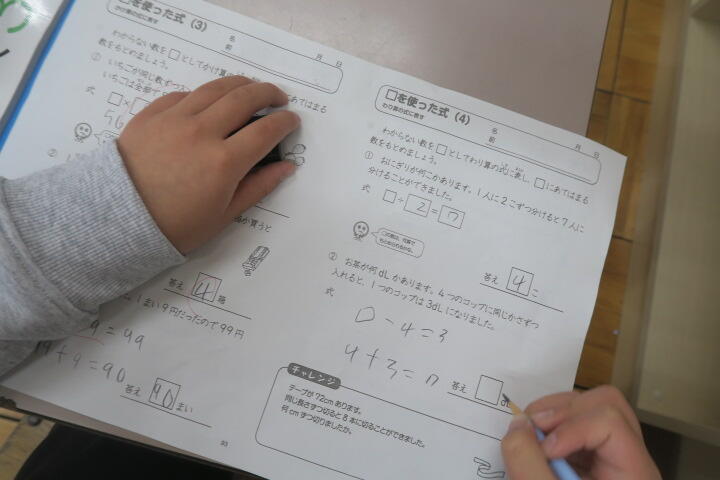 □を使った式(3)
かけ算の式に表す
名前
月 日
わからない数を□としてかけ算の
あてはまる
数をもとめましょう。
① いちごが同じ数ずつ
いちごは全部で
式
②
が買うと
答え 4 箱
1まい9円だったので99円
9=99
+9=90
答え 90 まい
93
□を使った式(4)
わり算の式に表す
名前
月 日
わからない数を□としてわり算の式に表し、□にあてはまる
数をもとめましょう。
① おにぎりが何こかあります。1人に2こずつ分けると7人に
分けることができました。
式 □÷2=7
答え 4 こ
② お茶が何dLかあります。4つのコップに同じかさずつ
入れると、1つのコップは3dLになりました。
式
□-4=3
4+3=7
答え □
チャレンジ
テープが72cmあります。
同じ長さずつ切ると8本に切ることができました。
何cmずつ切りましたか。